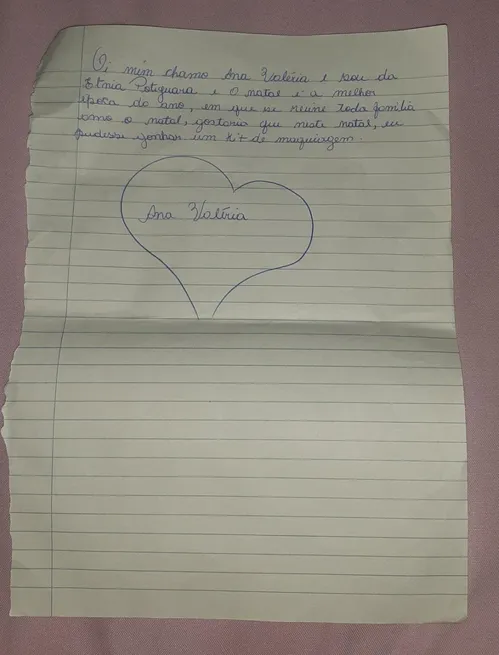 Oi mim chamo Ana Valéria e sou da
Etnia Potiguara e o natal é a melhor
época do ano, em que se reune toda familia
amo o natal, gostaria que neste natal, eu
pudesse ganhar um kit de maquiagem.
Ana Valéria